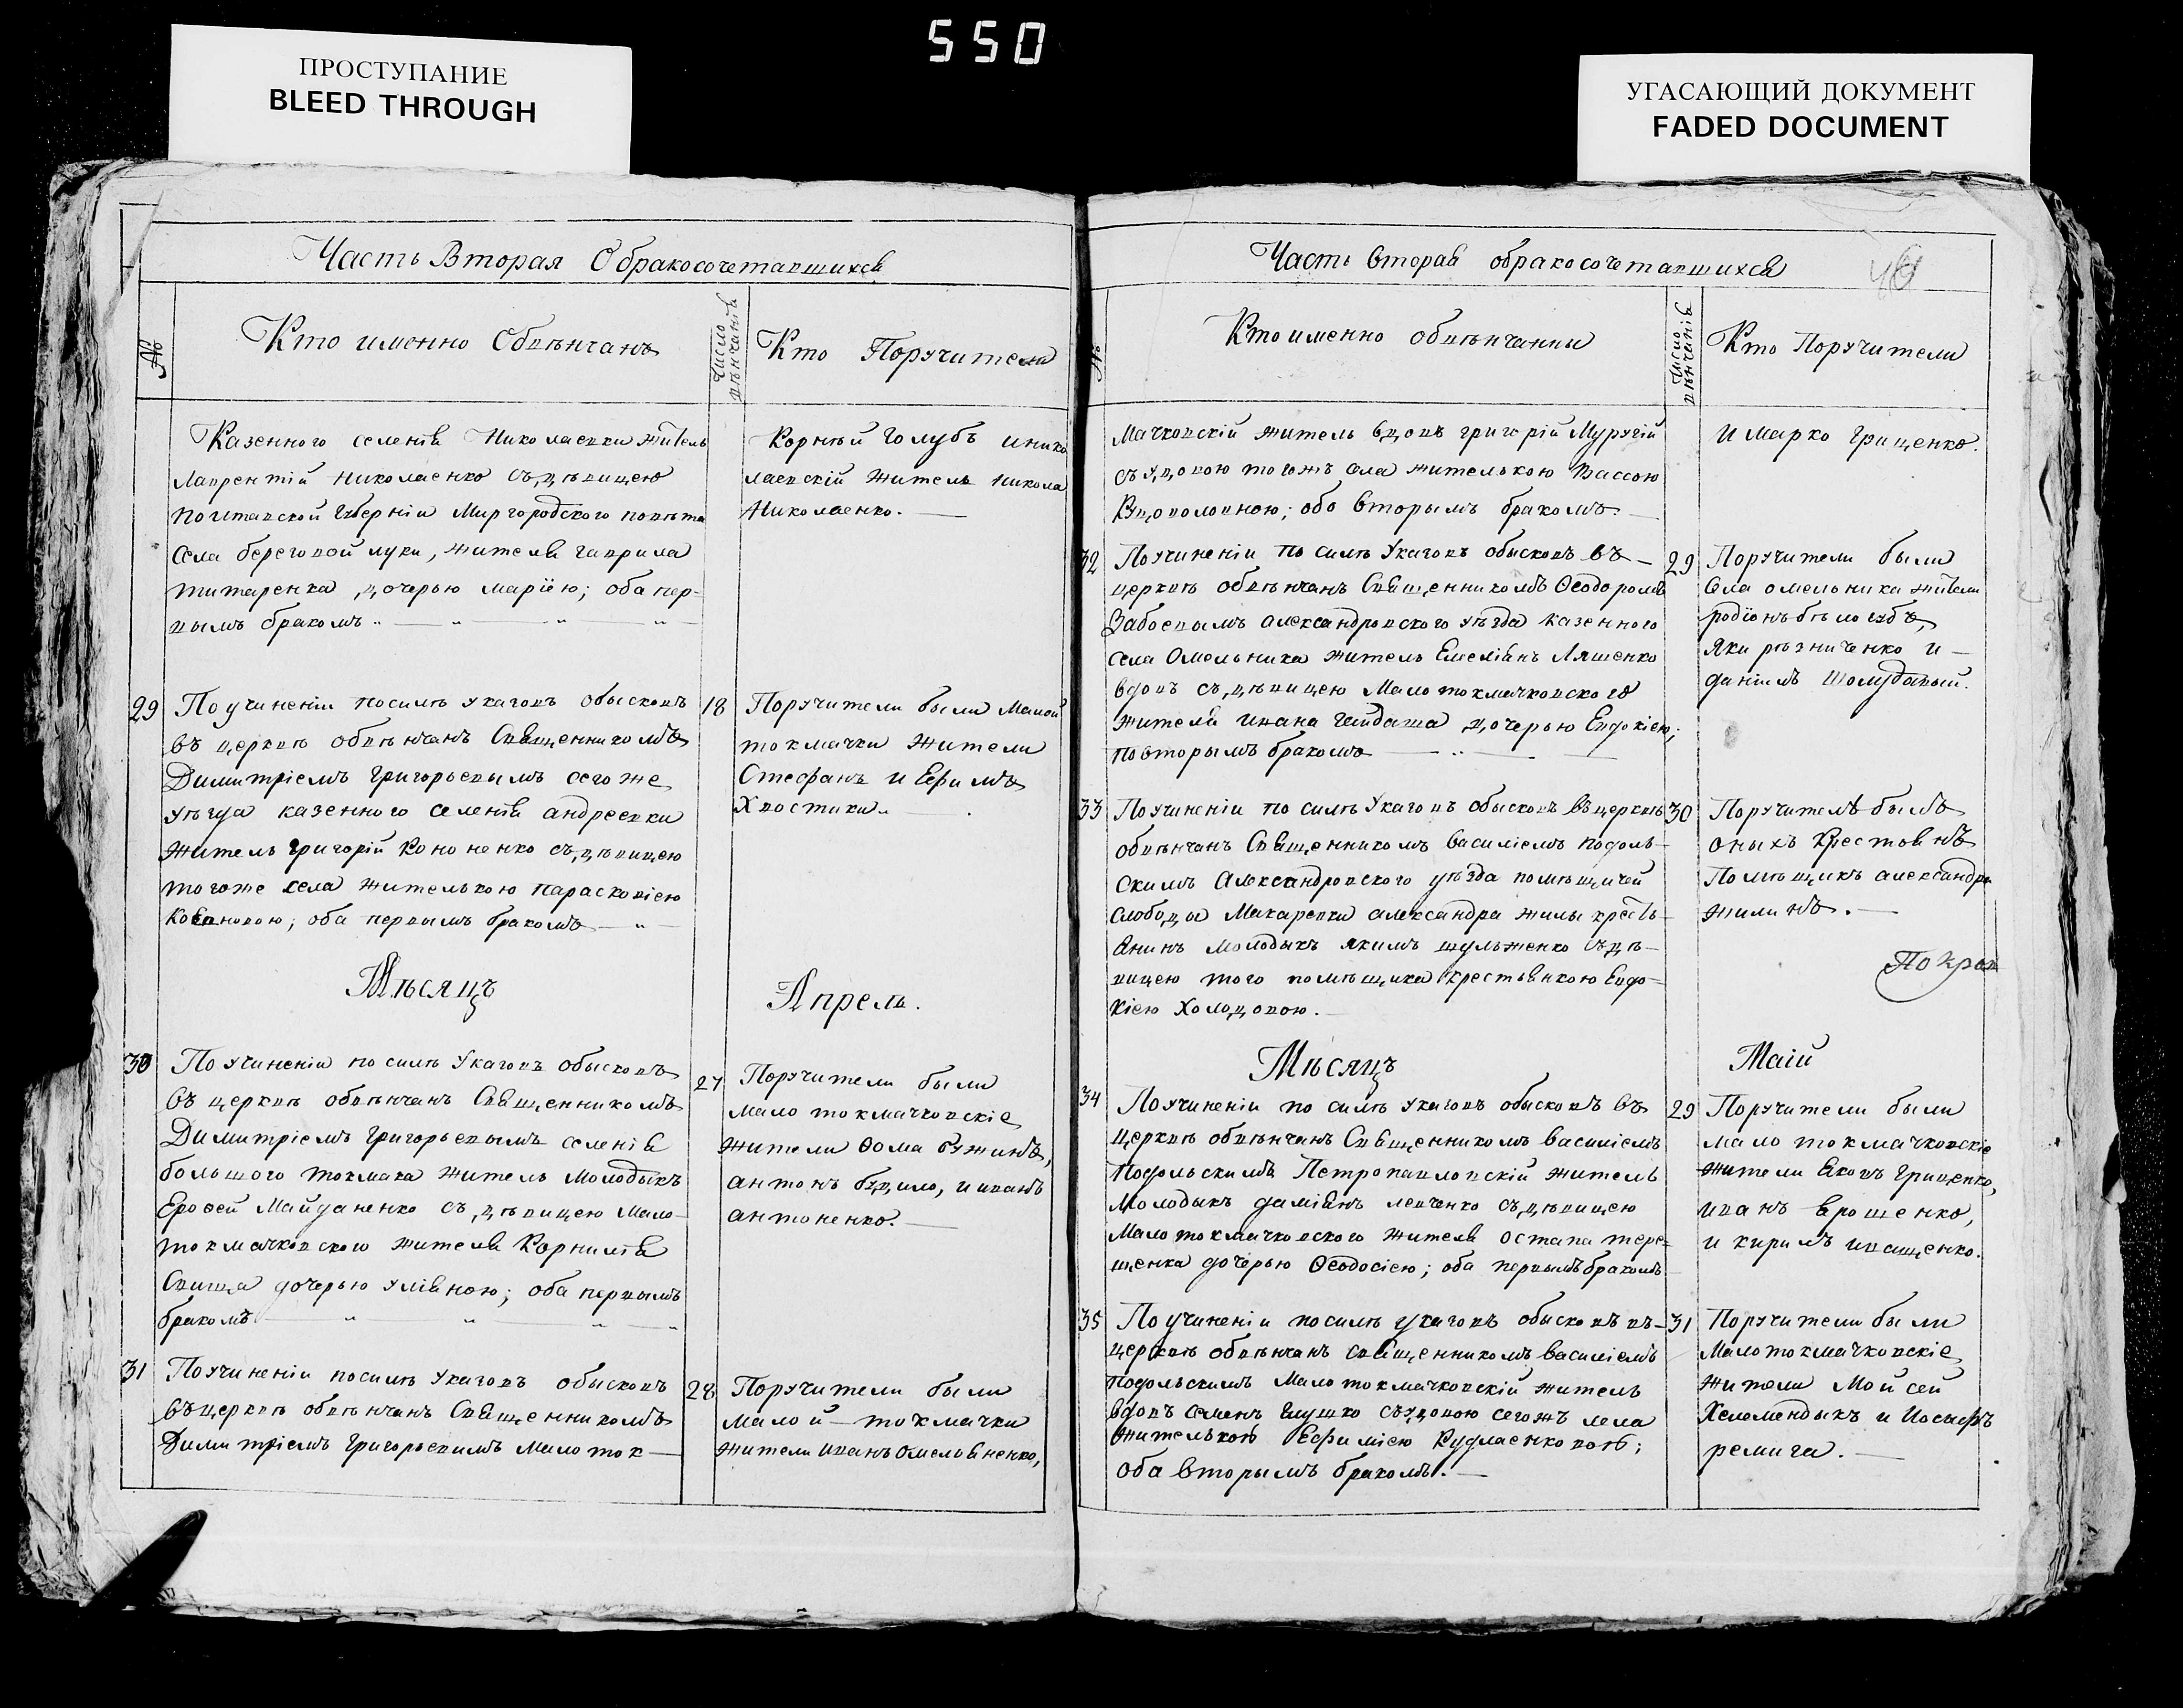 550
ПРОСТУПАНИЕ
BLEED THROUGH
УГАСАЮЩИЙ ДОКУМЕНТ
FADED DOCUMENT
Часть Вторая О бракосочетавшихся
№
Кто именно Обвѣнчанъ
Число вѣнчанія
Кто Поручители
Казенного селенія Николаевки житель
Лаврентій Николаенко съ дѣвицею
Полтавской Губерніи Миргородского повѣта
села береговой луки, жителя гаврила
титаренка дочерью маріею; оба пер-
вымъ бракомъ
Корнѣй Голубъ и нико
лаевскій житель никола
Николаенко.
29 По учиненіи по силѣ указовъ обысковъ
въ церквѣ обвѣнчанъ Священникомъ
Димитріемъ Григорьевымъ сего же
уѣзда казенного селенія андреевки
житель Григорій Кононенко съ дѣвицею
того же села жителькою парасковіею
оба первымъ бракомъ
18 Поручители были Малой
токмачки жители
Стефанъ и Ефимъ
Хвостики.
Мѣсяцъ
Апрель.
30 По учиненіи по силѣ Указовъ обысковъ
въ церквѣ обвѣнчанъ Священникомъ
Димитріемъ Григорьевымъ селенія
большого токмака житель Молодыкъ
Ерофей Майданенко съ дѣвицею Мало-
токмачковского жителя Корнилія
дочерью Уліяною; оба первымъ
бракомъ
27 Поручители были
мало токмачковскіе
жители Фома бужинъ,
антонъ и иванъ
антоненко.
31 По учиненіи по силѣ Указовъ обысковъ
въ церквѣ обвѣнчанъ Священникомъ
Димитріемъ Григорьевимъ Мало ток-
28 Поручители были
малой токмачки
жители Иванъ Омельяненко,
Часть вторая обракосочетавшихся
№
Кто именно обвѣнчанны
Число вѣнчанія
Кто Поручители
мачковскій житель вдовъ григорій Муругій
съ удовою тогожъ села жителькою Вассою
обо вторымъ бракомъ.
И Марко Грищенко.
32 По учиненіи по силѣ Указовъ обысковъ въ
церквѣ обвѣнчанъ Священникомъ Феодоромъ
Забоевымъ александровского уѣзда казенного
села Омельника житель Емеліянъ Ляшенко
вдовъ съ дѣвицею Мало токмачковского
жителя ивана гайдаша дочерью Евдокіею;
по вторымъ бракомъ
29 Поручители были
села омельника жители
родіонъ бѣлогубъ,
Яки рѣзниченко и
даніилъ Шолудовый.
33 По учиненіи по силѣ Указовъ обысковъ въ церквѣ
обвѣнчанъ Священникомъ Василіемъ Подоль-
скимъ Александровского уѣзда помѣщичей
слободы Макаревки александра жилы кресть-
янинъ молодыкъ якимъ шульженко съ дѣ-
вицею того помѣщика крестьянкою Евдо-
кіею Холодовою.
30 Поручителѣ былъ
оныхъ Крестьянъ
Помѣщикъ александръ
жилинъ.
Мѣсяцъ
Маій
34 По учиненіи по силѣ указовъ обысковъ въ
церквѣ обвѣнчанъ Священникомъ василіемъ
Подольскимъ Петропавловскій житель
Молодыкъ даміянъ левченко съ дѣвицею
мало токмачковского жителя остапа тере-
щенка дочерью Феодосіею; оба первымъ бракомъ
29 Поручители были
мало токмачковскіе
жители Яковъ Грищенко,
иванъ ярошенко,
и кирилъ иващенко.
35 По учиненіи по силѣ указовъ обысковъ въ
церквѣ обвѣнчанъ священникомъ василіемъ
подольскимъ Мало токмачковскій житель
вдовъ семенъ Глушко съ удовою сегожъ села
жителькою Ефиміею Кудлаенковою;
оба вторымъ бракомъ.
31 Поручители были
Мало токмачковскіе
жители Мойсей
Хелемендыкъ и Иосифъ
ремига.